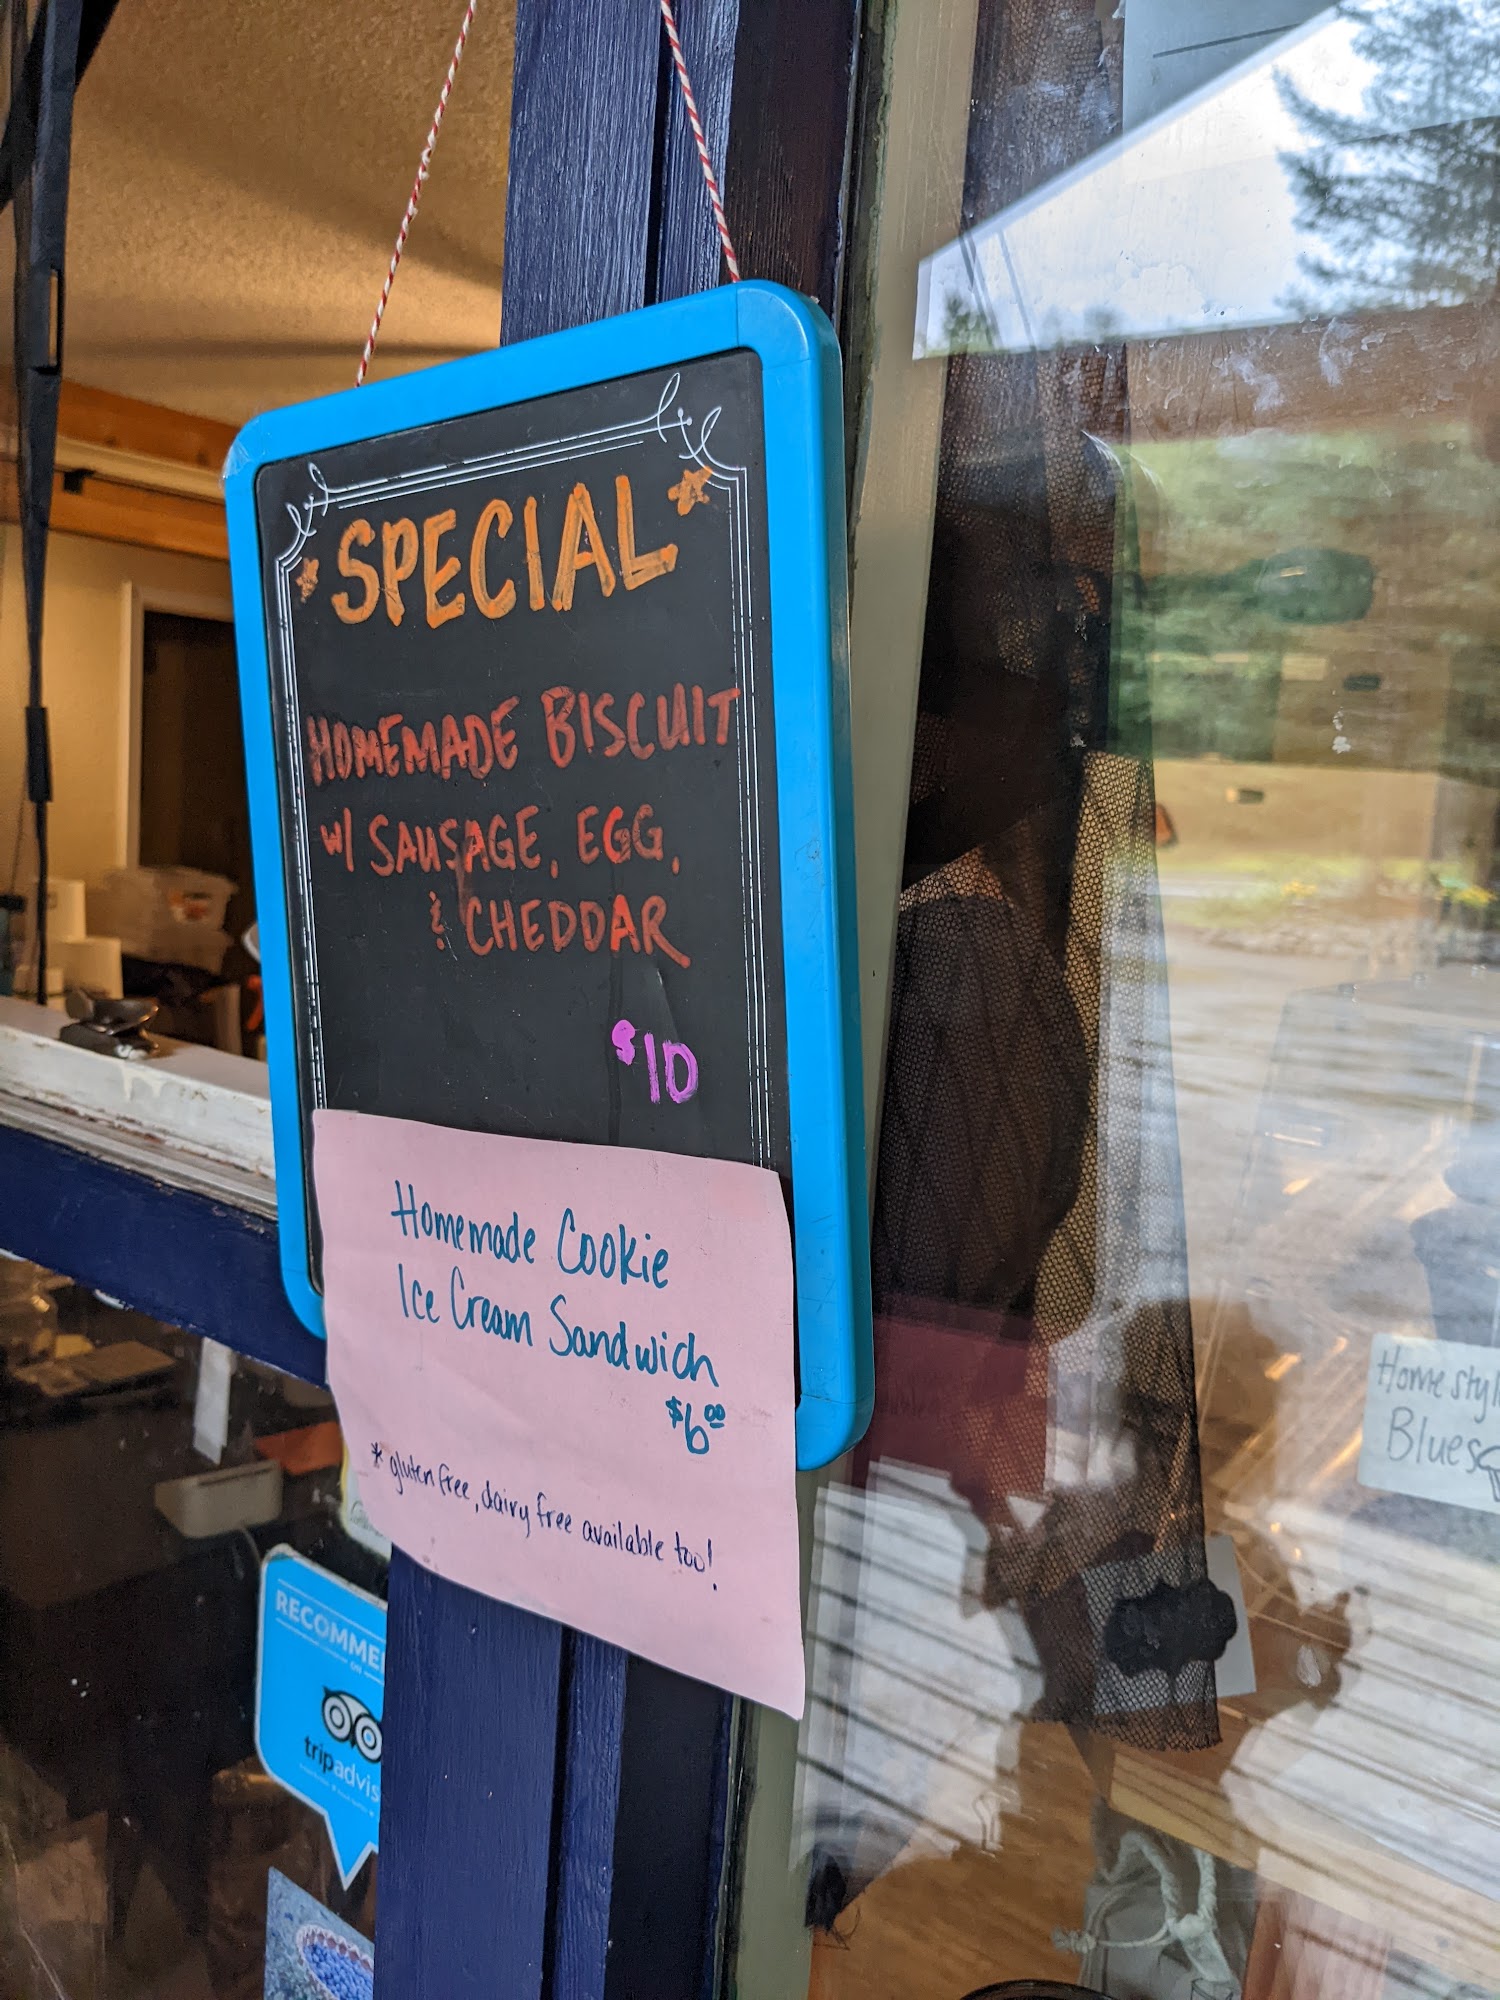 *SPECIAL*
HOMEMADE BISCUIT
W/ SAUSAGE, EGG,
& CHEDDAR
$10
Homemade Cookie
Ice Cream Sandwich
$6.00
* gluten free, dairy free available too!
RECOMME
ON
tripadvis
Homestyl
Blues